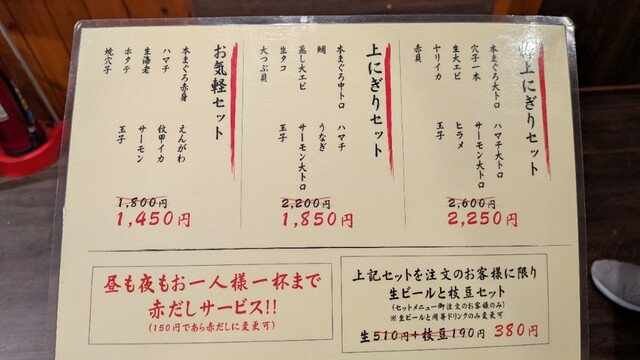 特上にぎりセット
本まぐろ大トロ ハマチ大トロ
穴子一本 サーモン大トロ
生大エビ ヒラメ
ヤリイカ 玉子
赤貝
2,600円
2,250円
上にぎりセット
本まぐろ中トロ ハマチ
鯛 うなぎ
蒸し大エビ サーモン大トロ
生タコ 玉子
大つぶ貝
2,200円
1,850円
お気軽セット
本まぐろ赤身 えんがわ
ハマチ 紋甲イカ
生海老 サーモン
ホタテ 玉子
焼穴子
1,800円
1,450円
昼も夜もお一人様一杯まで
赤だしサービス!!
(150円であら赤だしに変更可)
上記セットを注文のお客様に限り
生ビールと枝豆セット
(セットメニュー御注文のお客様のみ)
※生ビールと同等ドリンクのみ変更可
生510円+枝豆190円 380円